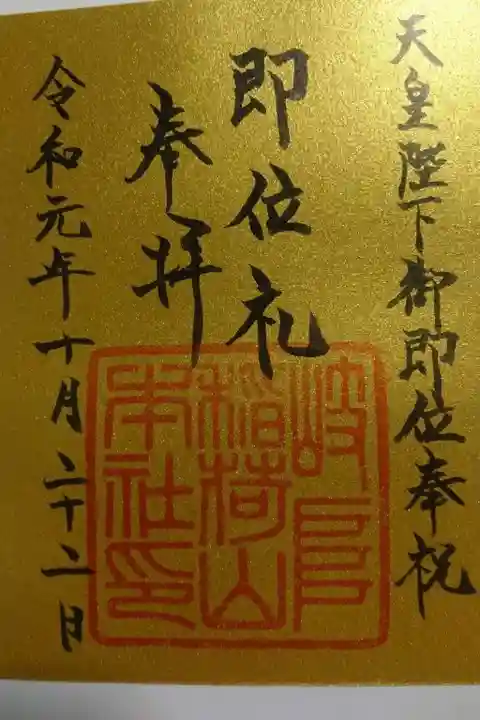 天皇陛下御即位奉祝
即位礼
奉拝
岐阜
稲荷山
本社印
令和元年十月二十二日